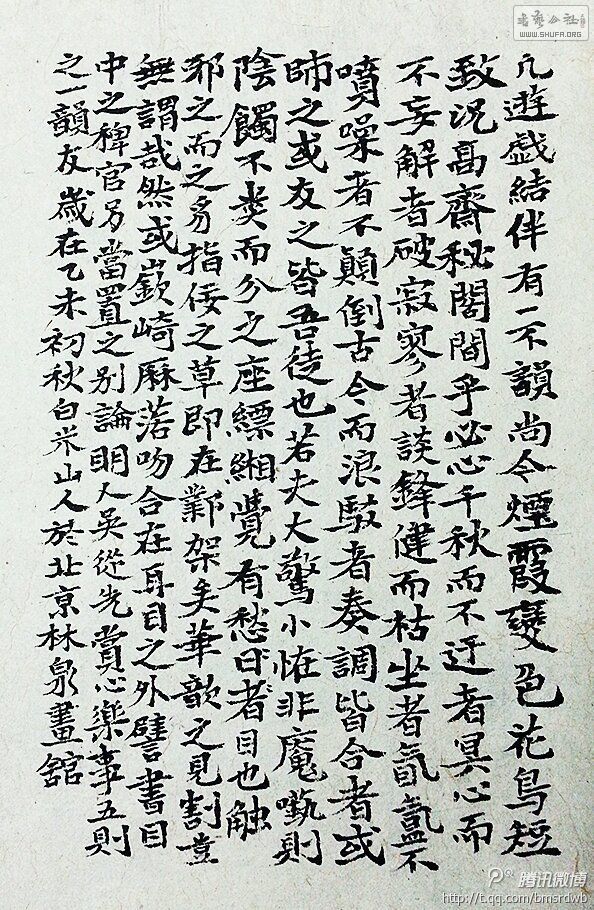 凡遊戲結伴有一不韻尚令煙霞變色花鳥短
致況高齋秘閣間乎必心千秋而不迂者冥心而
不妄解者破寂寥者談鋒健而枯坐者氤氳不
噴噪者不顛倒古今而浪駁者奏調皆合者或
師之或友之皆吾徒也若夫大驚小怪非魔囈則
陰不类而分之座縹緗覺有愁者目也触
邪之而之多指佞之草即在鄴架矣華歆之見割豈
無謂哉然或嶔崎厤落吻合在耳目之外譬書目
中之稗官另當置之別論明人吳從先賞心樂事五則
之一韻友歲在乙未初秋白米山人於北京林泉畫舘
书艺公社
WWW.SHUFA.ORG
腾讯微博
http://t.qq.com/bmsrdwb